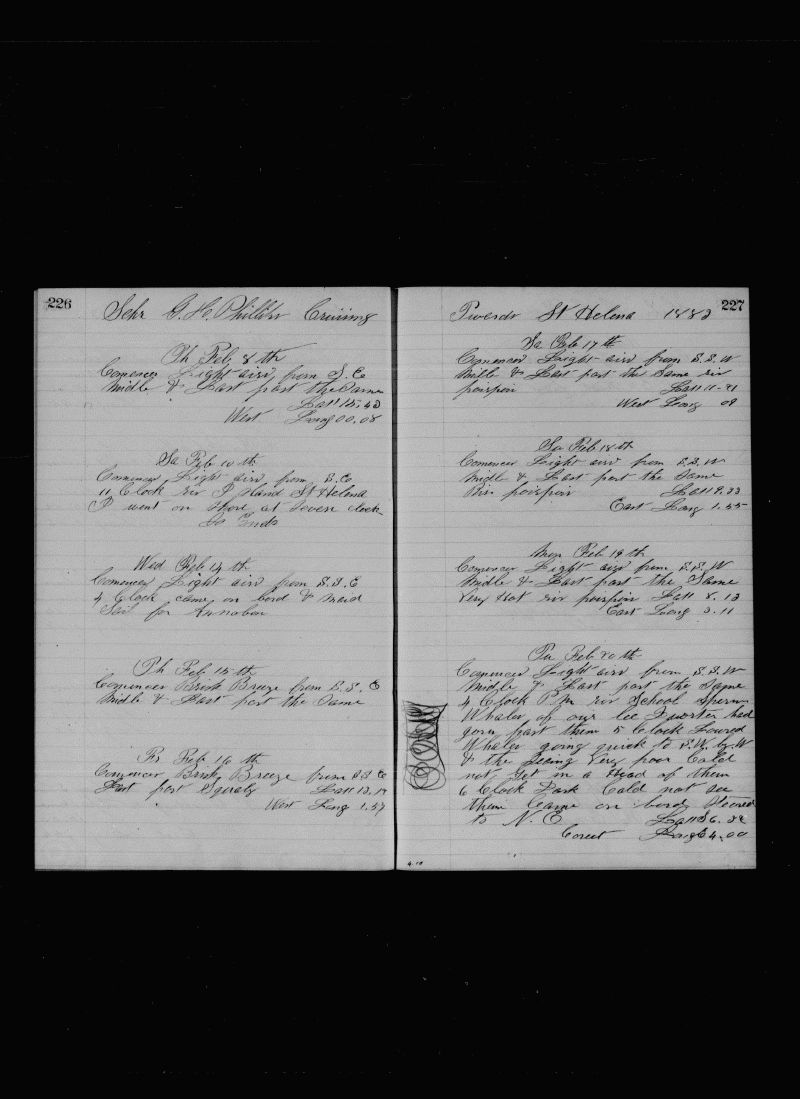 226
Schr G. H. Phillips Cruising
Th Feb 8 th
Comences Light airs from S. E
Midle & Last part the Same
Latt 15,43
West Long 00.08
Sa Feb 10 th
Comences Light airs from S. E
11 Clock Island St Helena
I went on Shore at Seven clock
So Ends
Wed Feb 14 th
Comences Light airs from S. S. E
4 Clock came on bord & maid
Sail for
Th Feb 15 th
Comences Brisk Breeze from S. S. E
Midle & Last part the Same
Fr Feb 16 th
Comences Brisk Breeze from S S E
Last part Squaly Latt 13.17
West Long 1.57
227
Twords St Helena 1883
Sa Feb 17 th
Comences Light airs from S. S. W
Midle & Last part the Same
Latt 11-21
West Long 08
Su Feb 18 th
Comences Light airs from S. S. W
Midle & Last part the Same
Latt 9.33
East Long 1.55
Mon Feb 19 th
Comences Light airs from S. S. W
Midle & Last part the Same
Very Hot Latt 8.13
East Long 3.11
Tu Feb 20 th
Comences Light airs from S. S. W
Midle & Last part the Same
4 Clock P. M. School Sperm
Whales of our lee Quorter had
gorn past them 5 Clock Lowred
Whales going quick to S.W. by W
& the Seeing Very poor Cold
not get in a Head of them
6 Clock Dark Cold not see
them Came on bord Steered
to N. E Latt 6.38
Corect Long 4.00
4.10